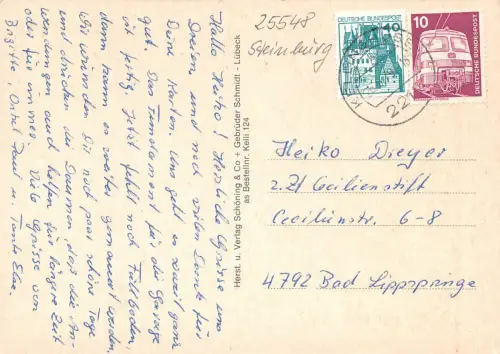 Hallo Heiko! Herzliche Grüsse uns
Dreien, und noch vielen Dank für
Deine Karten. Uns geht es soweit ganz
gut. Das Fundament für die Garage
ist fertig, jetzt fehlt noch Füllboden
dann kann es weiter gemauert werden.
Wir wünschen Dir noch paar schöne Tage
und drücken die Daumen, daß die An-
wendungen auch helfen für längere Zeit
oder für immer. Viele Grüsse von
Brigitte, Onkel Paul u. Tante Else.
Herst. u. Verlag Schöning & Co + Gebrüder Schmidt - Lübeck
as Bestellnr. Kelli 124
25548
Steinburg
40
DEUTSCHE BUNDESPOST
10
DEUTSCHE BUNDESPOST
Heiko Dreyer
z. Zt Cecilienstift
Cecilienstr. 6-8
4792 Bad Lippspringe